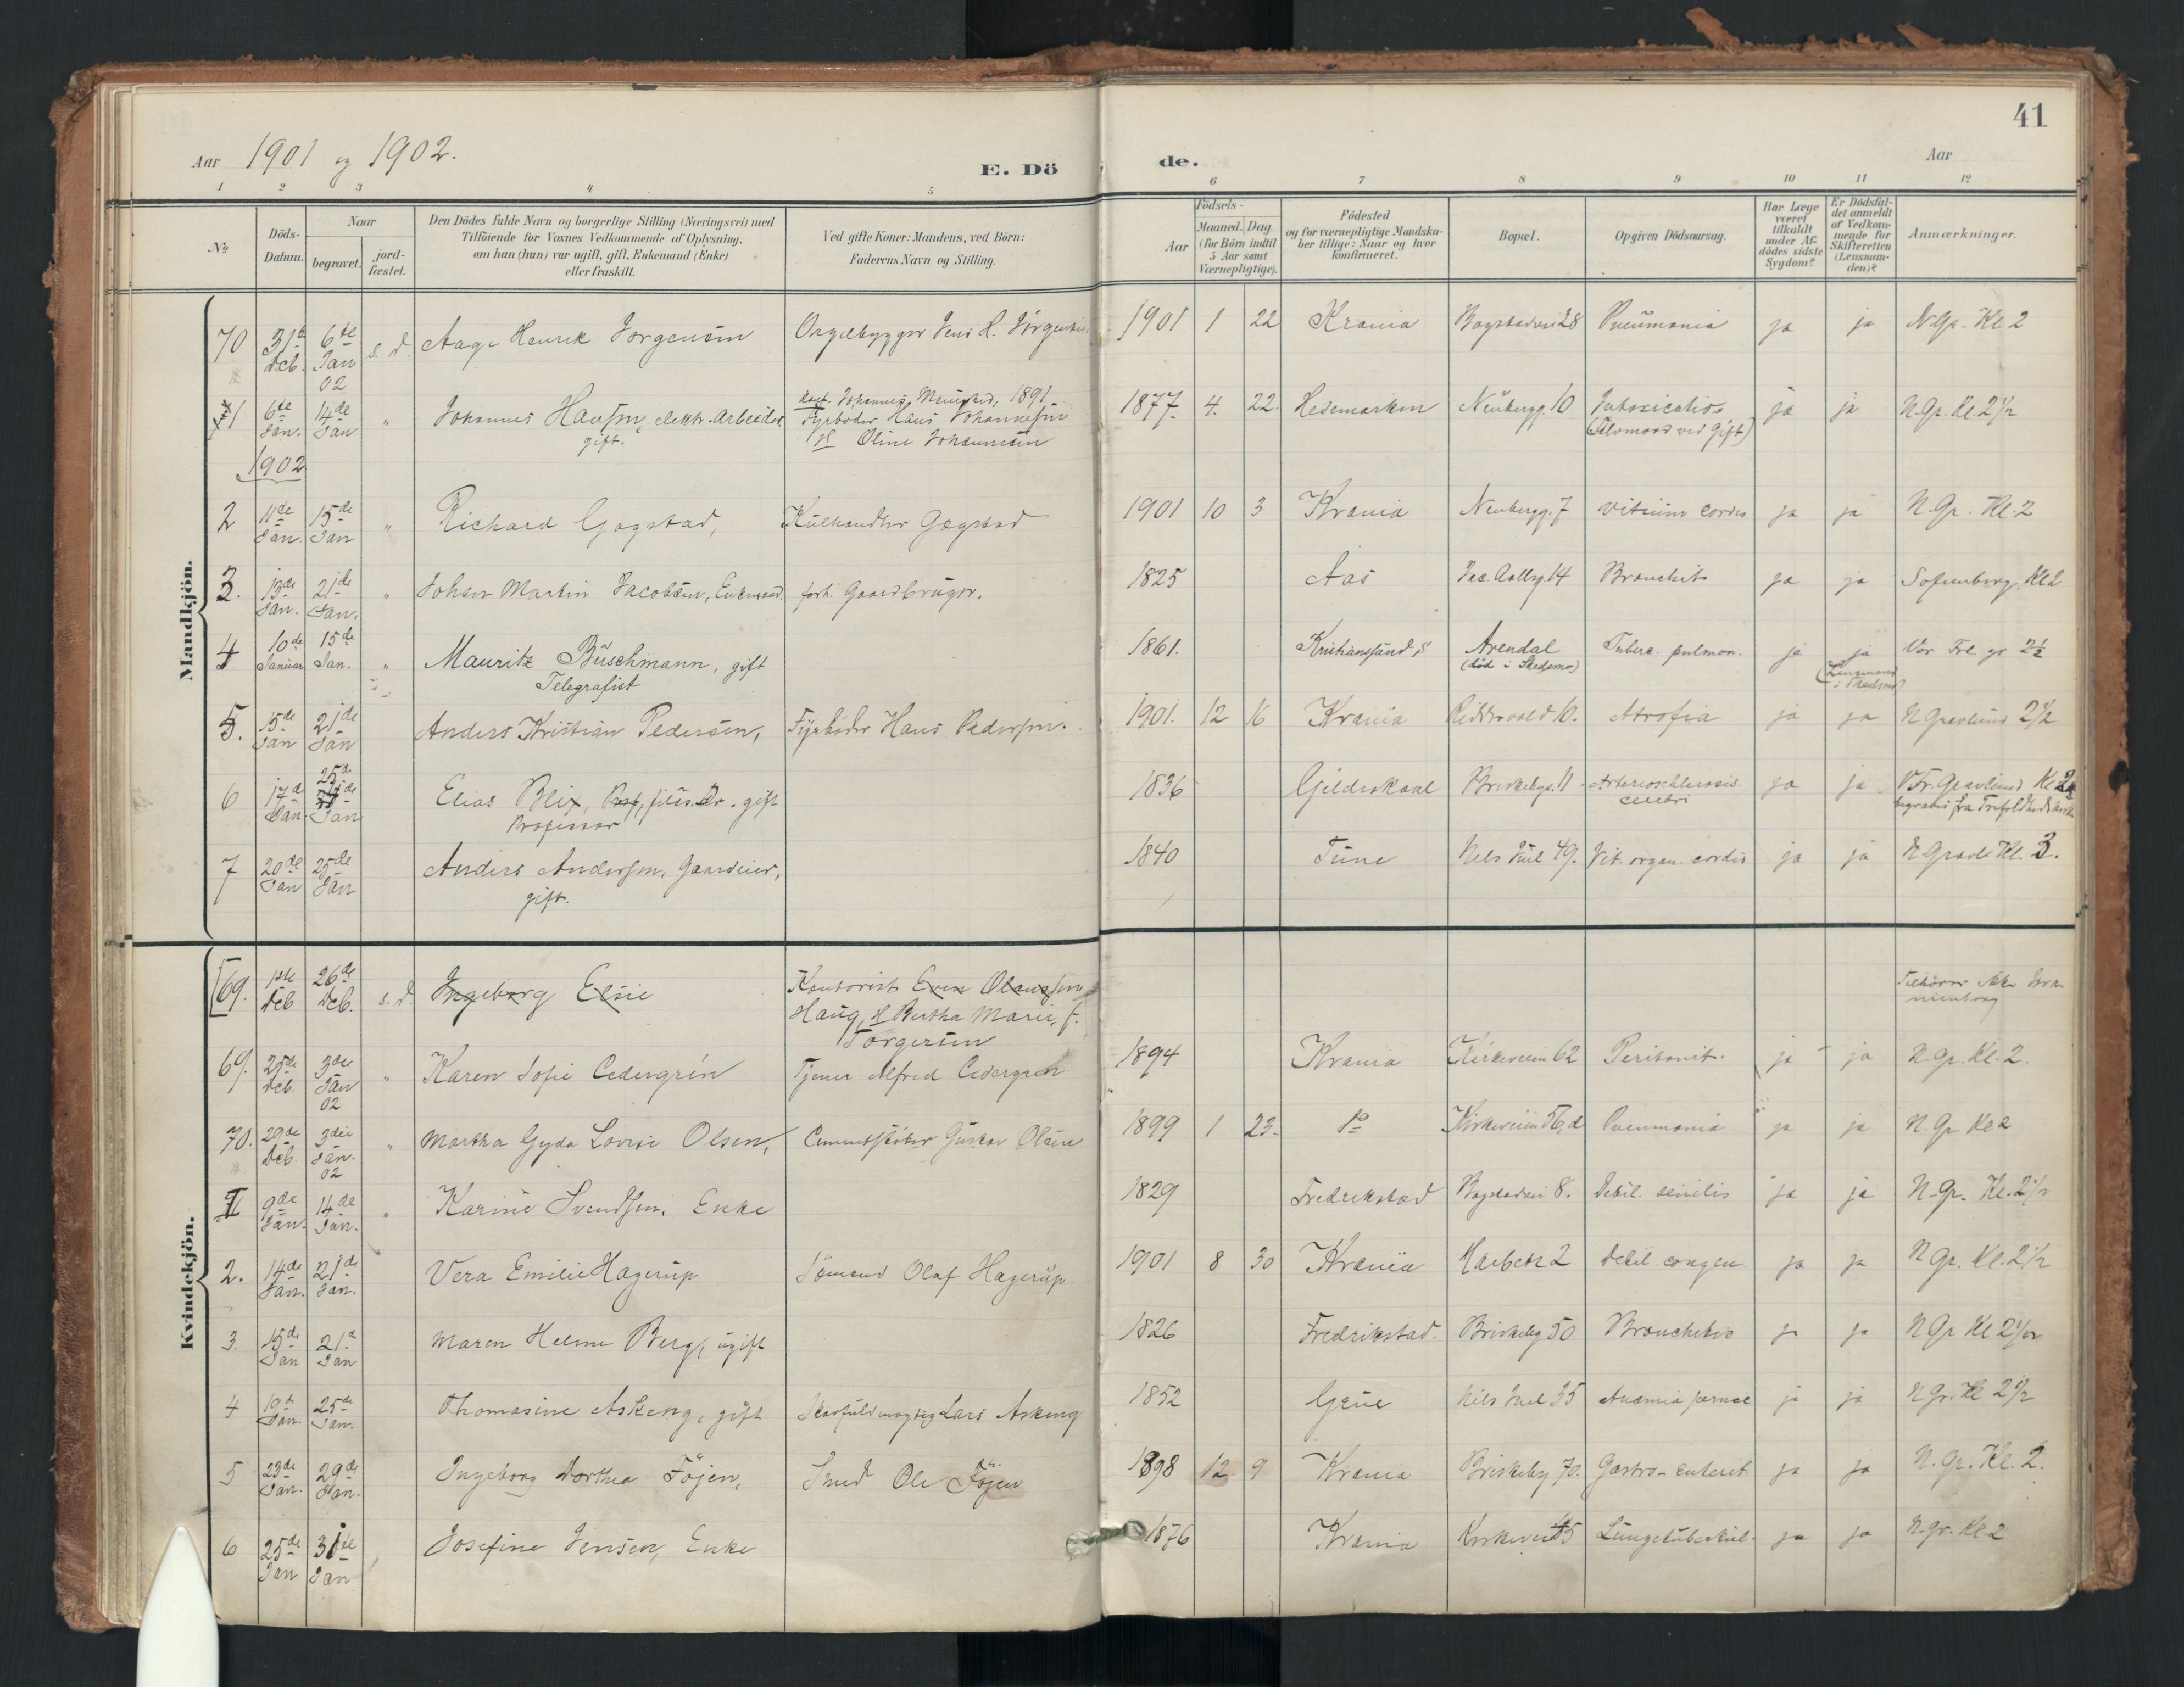 41
Aar 1901 og 1902.
E. Döde.
Aar
1 2 3 4 5 6 7 8 9 10 11 12
No.
Döds-Datum.
Naar
begravet.
jord-fæstet.
Den Dödes fulde Navn og borgerlige Stilling (Næringsvei) med
Tilföiende for Voxnes Vedkommende af Oplysning,
om han (hun) var ugift, gift, Enkemand (Enke)
eller fraskilt.
Ved gifte Koner: Mandens, ved Börn:
Faderens Navn og Stilling.
Födsels-
Aar
Maaned. Dag.
(for Börn indtil
5 Aar samt
Værnepligtige).
Födested
og for værnepligtige Mandska-
ber tillige: Naar og hvor
konfirmeret.
Bopæl.
Opgiven Dödsaarsag.
Har Læge
været
tilkaldt
under Af-
dödes sidste
Sygdom?
Er Dödsfal-
det anmeldt
af Vedkom-
mende for
Skifteretten
(Lensman-
den)?
Anmærkninger.
Mandkjön.
70 31te Deb. 6te Jan 02 s. d. Aage Henrik Jørgensen Orgelbygger Jens H. Jørgensen 1901 1 22 Krania Bogstadvei 28 Pneumonia ja ja N. Gr. Kl. 2
1 6te Jan. 14de Jan " Johannes Hansen, elektr. Arbeider gift. Fyrbøder Hans Johannesen Oline Johannesen 1877. 4. 22. Hedemarken Neubergg. 10 Intoxicatio (Selvmord ved Gift) ja ja N. Gr. Kl. 2 1/2
1902
2 11de Jan. 15de Jan " Richard Gogstad, Kulhandler Gogstad 1901 10 3 Krania Neubergg. 7 Vitium cordis ja ja N. Gr. Kl. 2
3. 13de Jan. 21de Jan. " Johan Martin Jacobsen, Enkemand. forh. Gaardbruger. 1825 Aas Jac. Aallsg. 14 Bronchit ja ja Sofienberg. Kl 2
4 10de Januar 15de Jan. " Mauritz Büschmann, gift Telegrafist 1861. Kristianssand S Arendal (död i Skedsmo) Tuberc. pulmon. ja ja (Lensmand i Skedsmo) Vor Frl. gr 2 1/2
5. 15de Jan 21de Jan Anders Kristian Pedersen, Fyrbøder Hans Pedersen. 1901. 12 16 Krania Riddervold 10. Atrofia ja ja N Gravlund 2 1/2
6 17de Jan 25de Jan Elias Blix, Dr. gift Professor 1836 Gildeskaal Briskebyg. 11 Arteriosclerosis cerebri ja ja V. Fr. Gravlund Kl 2 begravet fra Trefoldighedskirk
7 20de Jan 25de Jan Anders Andersen, Gaardeier, gift. 1840 Tune Nels Juel 49. Vit. organ. cordis ja ja N Gravl Kl. 3.
Kvindekjön.
69. 1ste Deb 26de Deb. s. d. Ingeborg Elsie Kontorist Even Olaussen Haug, Bertha Marie, f. Torgersen Tilhører ikke Uranienborg
69. 25de Deb. 3die Jan 02 " Karen Sofie Cedergren Tjener Alfred Cedergren 1894 Krania Kirkeveien 62 Peritonit. ja ja N. Gr. Kl. 2.
70. 29de Deb 3die Jan. 02 " Martha Gyda Lovise Olsen, Cementstøber Gustav Olsen 1899 1 23. Do Kirkeveien 56, d Pneumonia ja ja N. Gr Kl 2
1 9de Jan. 14de Jan. " Karine Svendsen, Enke 1829 Fredrikstad Bogstadvei 8. Debil. senilis ja ja N. Gr. Kl. 2 1/2
2. 14de Jan. 21de Jan. Vera Emilie Hagerup Sømand Olaf Hagerup 1901 8 30 Krania Harbitz 2 Debil. congen ja ja N Gr. Kl. 2 1/2
3. 15de Jan 21d Jan Maren Helene Berg, ugift 1826 Fredrikstad. Briskeby 50 Bronchitis ja ja N Gr Kl 2 1/2
4 19de Jan. 25de Jan. Thomasine Askeng, gift Lars Askeng 1852 Grue Nils Juel 35 Anæmia pernic ja ja N Gr. Kl 2 1/2
5 23de Jan. 29de Jan. Ingeborg Dorthea Föjen, Smed Ole Föjen 1898 12 9 Krania Briskeby 70. Gastro-enterit ja ja N. Gr. Kl. 2.
6 25de Jan 31te Jan Josefine Jensen, Enke 1876 Krania Kirkevei 45 Lungetuberkul. ja ja N. Gr. Kl. 2